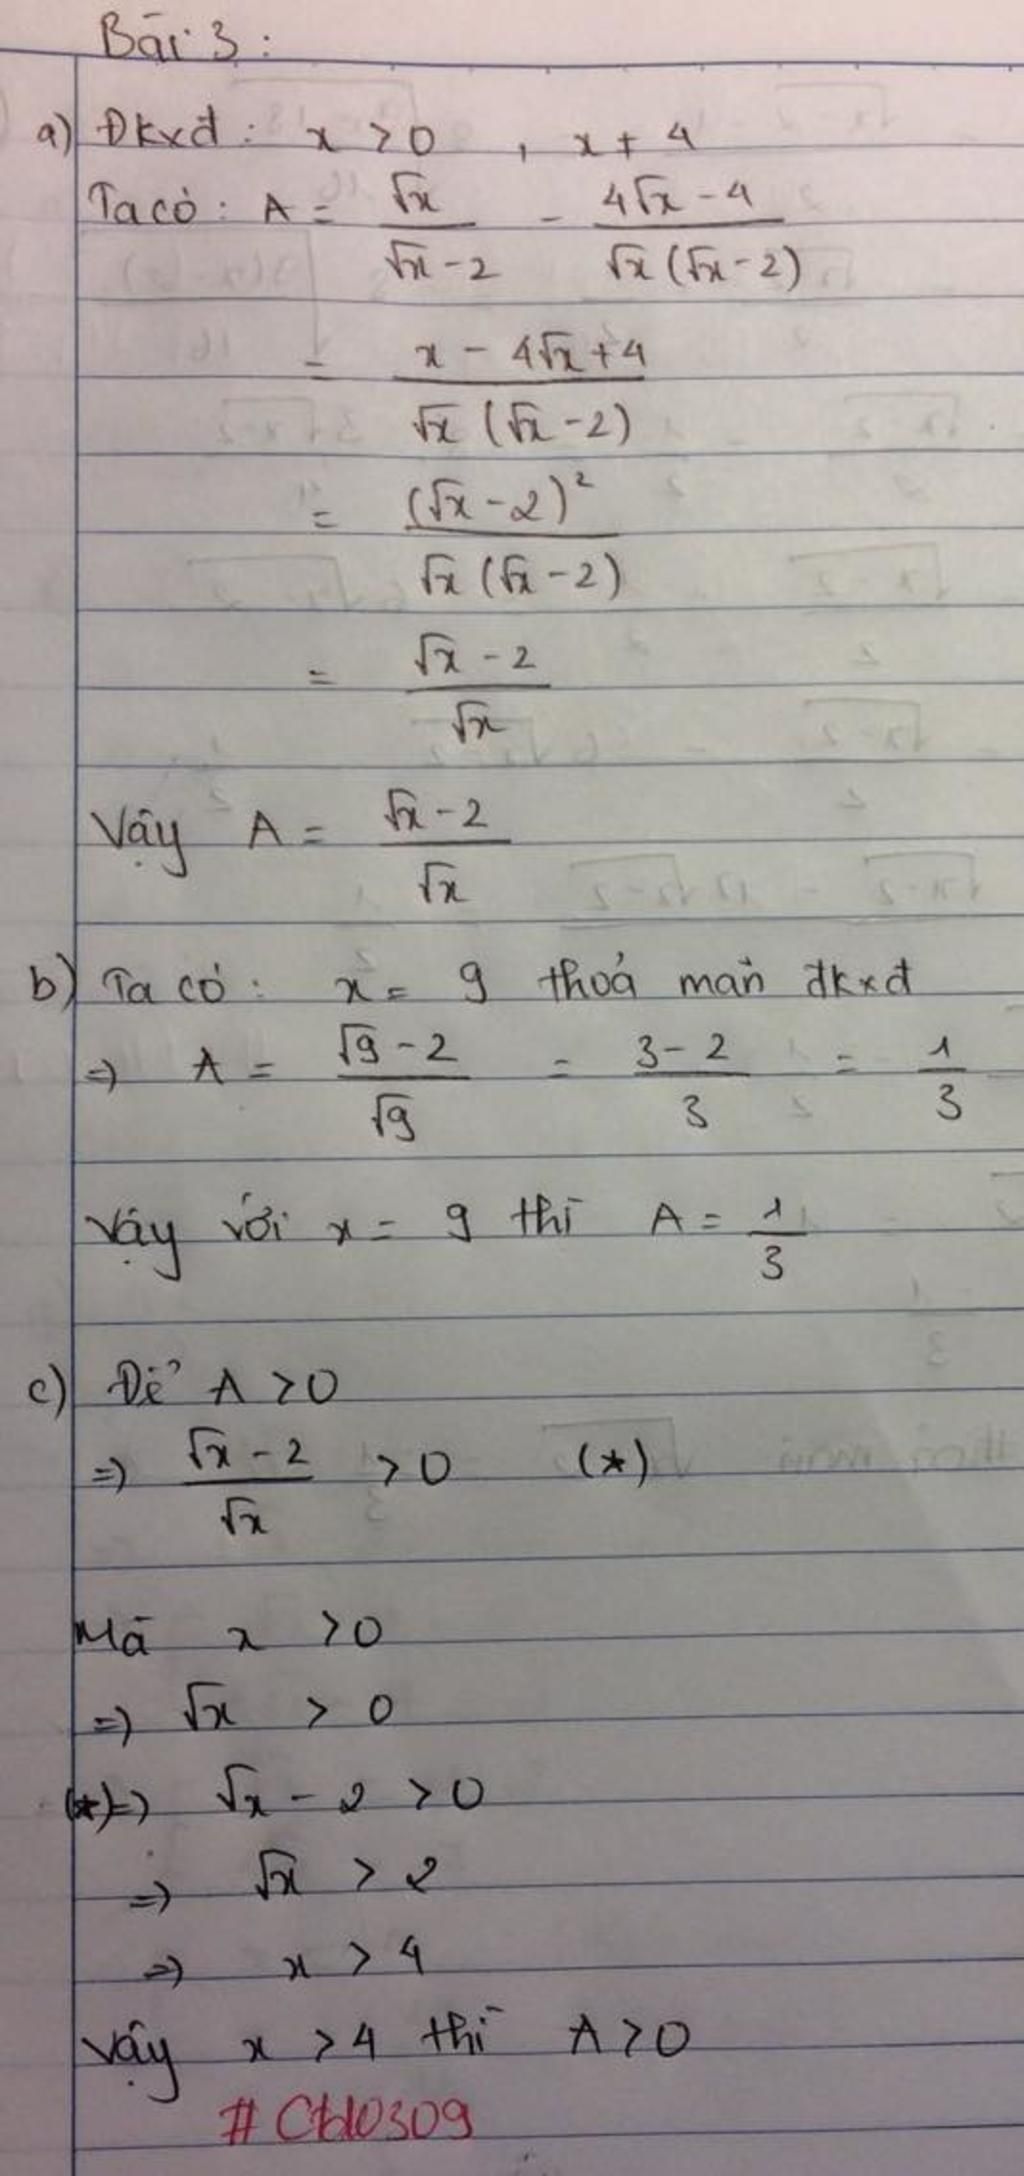 Bài 3:
a) Đkxđ: x > 0, x ≠ 4
Ta có: A = √x / (√x - 2) - (4√x - 4) / (√x (√x - 2))
= (x - 4√x + 4) / (√x (√x - 2))
= (√x - 2)² / (√x (√x - 2))
= (√x - 2) / √x
Vậy A = (√x - 2) / √x
b) Ta có: x = 9 thoả mãn đkxđ
=> A = (√9 - 2) / √9 = (3 - 2) / 3 = 1/3
Vậy với x = 9 thì A = 1/3
c) Để A > 0
=> (√x - 2) / √x > 0 (*)
Mà x > 0
=> √x > 0
(*) => √x - 2 > 0
=> √x > 2
=> x > 4
Vậy x > 4 thì A > 0